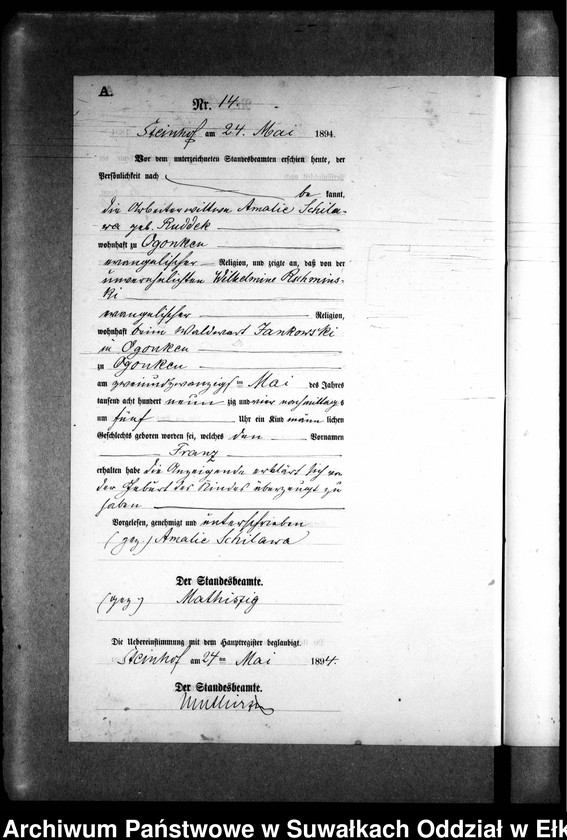 A.
Nr. 14.
Steinhof am 24. Mai 1894.
Vor dem unterzeichneten Standesbeamten erschien heute, der
Persönlichkeit nach
be kannt,
die Arbeiterwittwe Amalie Schila-
wa geb. Ruddek
wohnhaft zu Ogonken
evangelischer Religion, und zeigte an, daß von der
unverehelichten Wilhelmine Ruhmins-
ki
evangelischer Religion,
wohnhaft beim Waldwart Jankowski
in Ogonken
zu Ogonken
am zweiundzwanzigsten Mai des Jahres
tausend acht hundert neun zig und vier nachmittags
um fünf Uhr ein Kind männ lichen
Geschlechts geboren worden sei, welches den Vornamen
Franz
erhalten habe die Anzeigende erklärt sich von
der Geburt des Kindes überzeugt zu
haben
Vorgelesen, genehmigt und unterschrieben
(gez.) Amalie Schilawa
Der Standesbeamte.
(gez) Mathiszig
Die Uebereinstimmung mit dem Hauptregister beglaubigt.
Steinhof am 24ten Mai 1894.
Der Standesbeamte.
Archiwum Państwowe w Suwałkach Oddział w Ełk